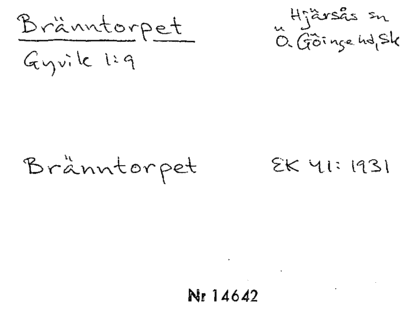 Bränntorpet
Hjärsås sn
Gyvik 1:9
Ö. Göinge hd, Sk
Bränntorpet
EK 41: 1931
Nr 14642